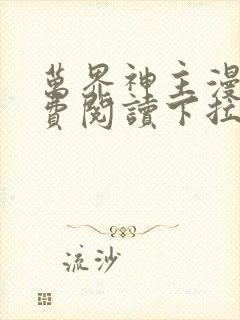 萬界神主漫
費閱讀下拉
流沙